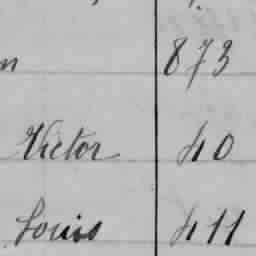 n 873
Victor 40
Louis 411